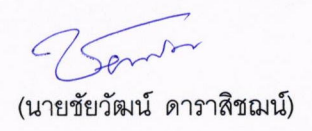 (นายชัยวัฒน์ ดาราสิชฌน์)